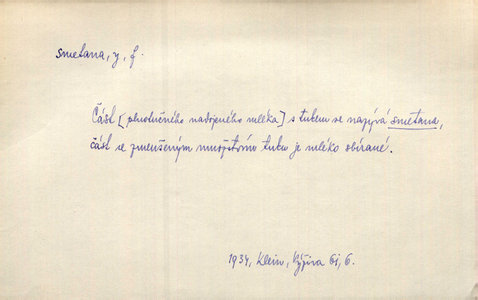 smetana, y, f.
Část [plnotučného nadojeného mléka] s tukem se nazývá smetana,
část se zmenšeným množstvím tuku je mléko sbírané.
1934, Klein, Výživa 61, 6.